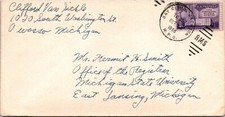 Clifford Van Sickle
1030 South Washington St.
Owosso Michigan
Mr. Kermit H. Smith
Office of the Registrar
Michigan State University
East Lansing, Michigan
RMS